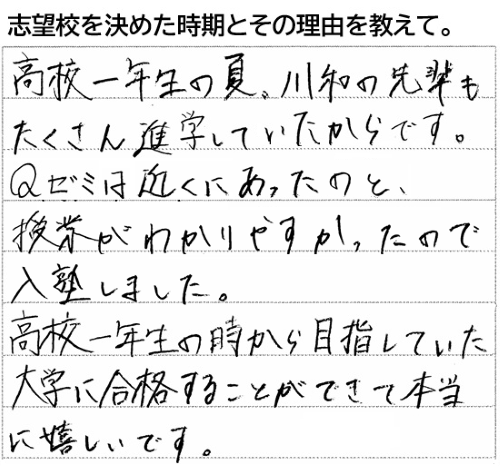 志望校を決めた時期とその理由を教えて。
高校一年生の夏、川和の先輩も
たくさん進学していたからです。
Qゼミは近くにあったのと、
授業がわかりやすかったので
入塾しました。
高校一年生の時から目指していた
大学に合格することができて本当
に嬉しいです。